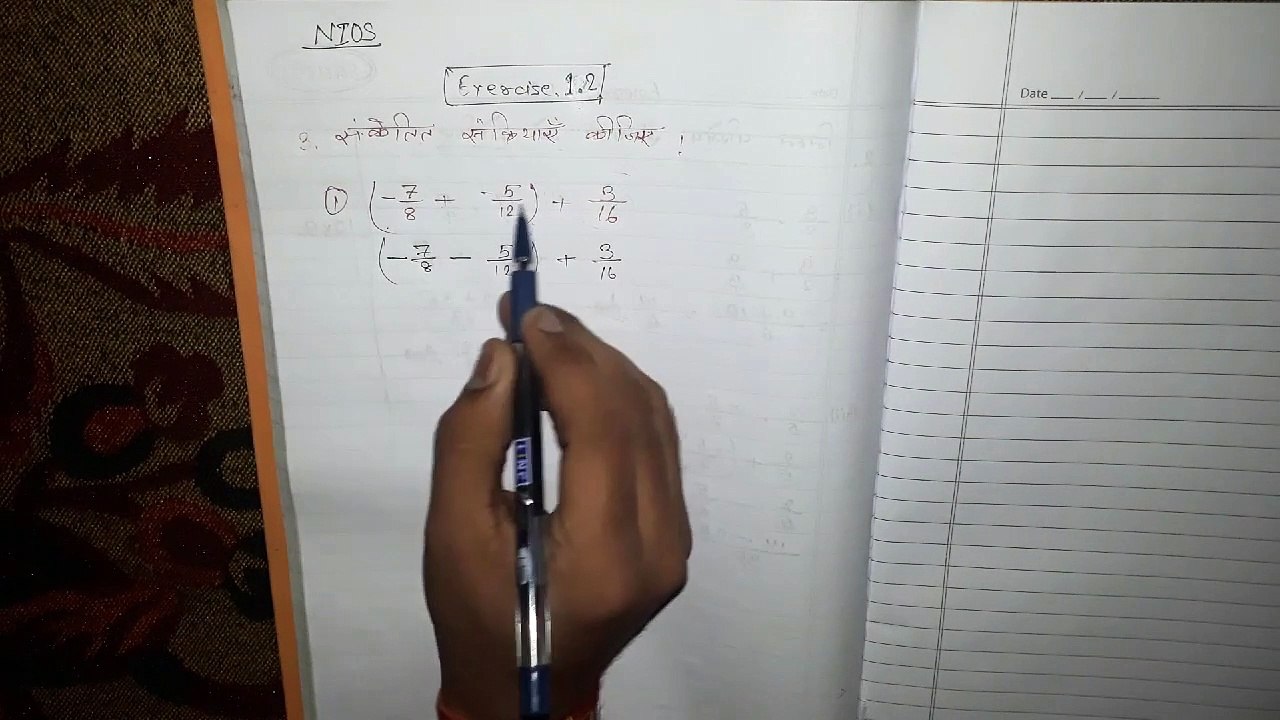 NIOS
Exercise. 1.2
3. संकेतित संक्रियाएँ कीजिए ।
① (-7/8 + -5/12) + 3/16
(-7/8 - 5/12) + 3/16
Date __ / __ / ____
LINC